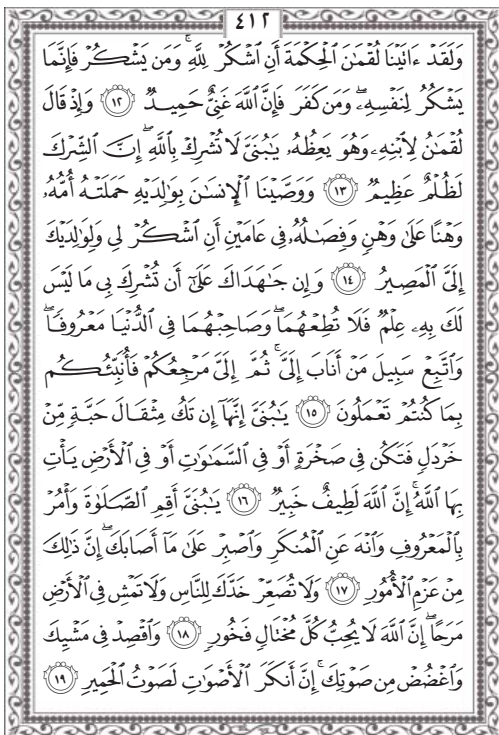 ٤١٢
وَلَقَدۡ ءَاتَيۡنَا لُقۡمَٰنَ ٱلۡحِكۡمَةَ أَنِ ٱشۡكُرۡ لِلَّهِۚ وَمَن يَشۡكُرۡ فَإِنَّمَا
يَشۡكُرُ لِنَفۡسِهِۦۖ وَمَن كَفَرَ فَإِنَّ ٱللَّهَ غَنِيٌّ حَمِيدٞ ١٢ وَإِذۡ قَالَ
لُقۡمَٰنُ لِٱبۡنِهِۦ وَهُوَ يَعِظُهُۥ يَٰبُنَيَّ لَا تُشۡرِكۡ بِٱللَّهِۖ إِنَّ ٱلشِّرۡكَ
لَظُلۡمٌ عَظِيمٞ ١٣ وَوَصَّيۡنَا ٱلۡإِنسَٰنَ بِوَٰلِدَيۡهِ حَمَلَتۡهُ أُمُّهُۥ
وَهۡنًا عَلَىٰ وَهۡنٖ وَفِصَٰلُهُۥ فِي عَامَيۡنِ أَنِ ٱشۡكُرۡ لِي وَلِوَٰلِدَيۡكَ
إِلَيَّ ٱلۡمَصِيرُ ١٤ وَإِن جَٰهَدَاكَ عَلَىٰٓ أَن تُشۡرِكَ بِي مَا لَيۡسَ
لَكَ بِهِۦ عِلۡمٞ فَلَا تُطِعۡهُمَاۖ وَصَاحِبۡهُمَا فِي ٱلدُّنۡيَا مَعۡرُوفٗاۖ
وَٱتَّبِعۡ سَبِيلَ مَنۡ أَنَابَ إِلَيَّۚ ثُمَّ إِلَيَّ مَرۡجِعُكُمۡ فَأُنَبِّئُكُم
بِمَا كُنتُمۡ تَعۡمَلُونَ ١٥ يَٰبُنَيَّ إِنَّهَآ إِن تَكُ مِثۡقَالَ حَبَّةٖ مِّنۡ
خَرۡدَلٖ فَتَكُن فِي صَخۡرَةٍ أَوۡ فِي ٱلسَّمَٰوَٰتِ أَوۡ فِي ٱلۡأَرۡضِ يَأۡتِ
بِهَا ٱللَّهُۚ إِنَّ ٱللَّهَ لَطِيفٌ خَبِيرٞ ١٦ يَٰبُنَيَّ أَقِمِ ٱلصَّلَوٰةَ وَأۡمُرۡ
بِٱلۡمَعۡرُوفِ وَٱنۡهَ عَنِ ٱلۡمُنكَرِ وَٱصۡبِرۡ عَلَىٰ مَآ أَصَابَكَۖ إِنَّ ذَٰلِكَ
مِنۡ عَزۡمِ ٱلۡأُمُورِ ١٧ وَلَا تُصَعِّرۡ خَدَّكَ لِلنَّاسِ وَلَا تَمۡشِ فِي ٱلۡأَرۡضِ
مَرَحًاۖ إِنَّ ٱللَّهَ لَا يُحِبُّ كُلَّ مُخۡتَالٖ فَخُورٖ ١٨ وَٱقۡصِدۡ فِي مَشۡيِكَ
وَٱغۡضُضۡ مِن صَوۡتِكَۚ إِنَّ أَنكَرَ ٱلۡأَصۡوَٰتِ لَصَوۡتُ ٱلۡحَمِيرِ ١٩